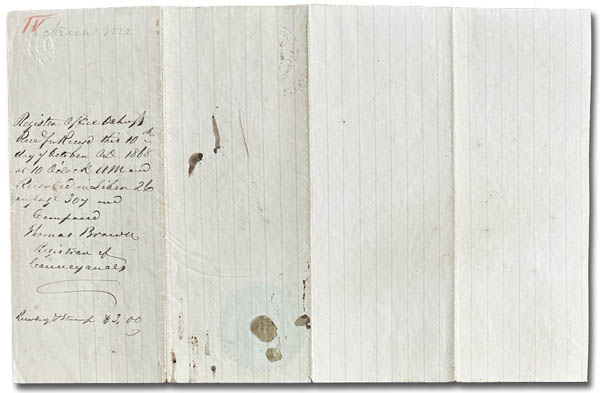 IV
Register Office Oahu ss
Rec'd for Record this 10th
day of October A.D. 1868
at 10 O'clock A M and
Recorded in Liber 26
on page 307 and
Compared
Thomas Brown
Registrar of
Conveyances
Recording & Stamp $3.00